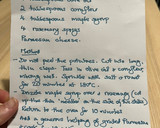 2 tablespoons cornflour
4 tablespoons maple syrup
4 rosemary sprigs
Parmesan cheese.
Method
Do not peel the potatoes. Cut into long,
thin wedges. Toss in olive oil & cornflour
well. Sprinkle with salt & roast
for 20 minutes at 180°C.
Drizzle maple syrup over & rosemary (cut
up the thin "needles" at the side of the stalks)
Return to the oven for 10
minutes
Add a generous helping of grated Parmesan